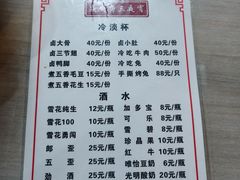 冷淡杯
卤大骨 40元/份 卤小肚 40元/份
卤三节翅 40元/份 冷吃牛肉 50元/份
卤鸭脚 40元/份 冷吃兔 40元/份
煮五香毛豆 15元/份 手撕烤兔 88元/只
煮五香花生 15元/份
酒水
雪花纯生 12元/瓶 加多宝 8元/瓶
雪花100 10元/瓶 可乐 8元/瓶
雪花勇闯 10元/瓶 雪碧 8元/瓶
郎歪 25元/瓶 珍品果 10元/瓶
五歪 25元/瓶 红牛 10元/瓶
歪歪 25元/瓶 唯怡豆奶 8元/瓶
劲酒 25元/瓶 光明酸奶 20元/瓶